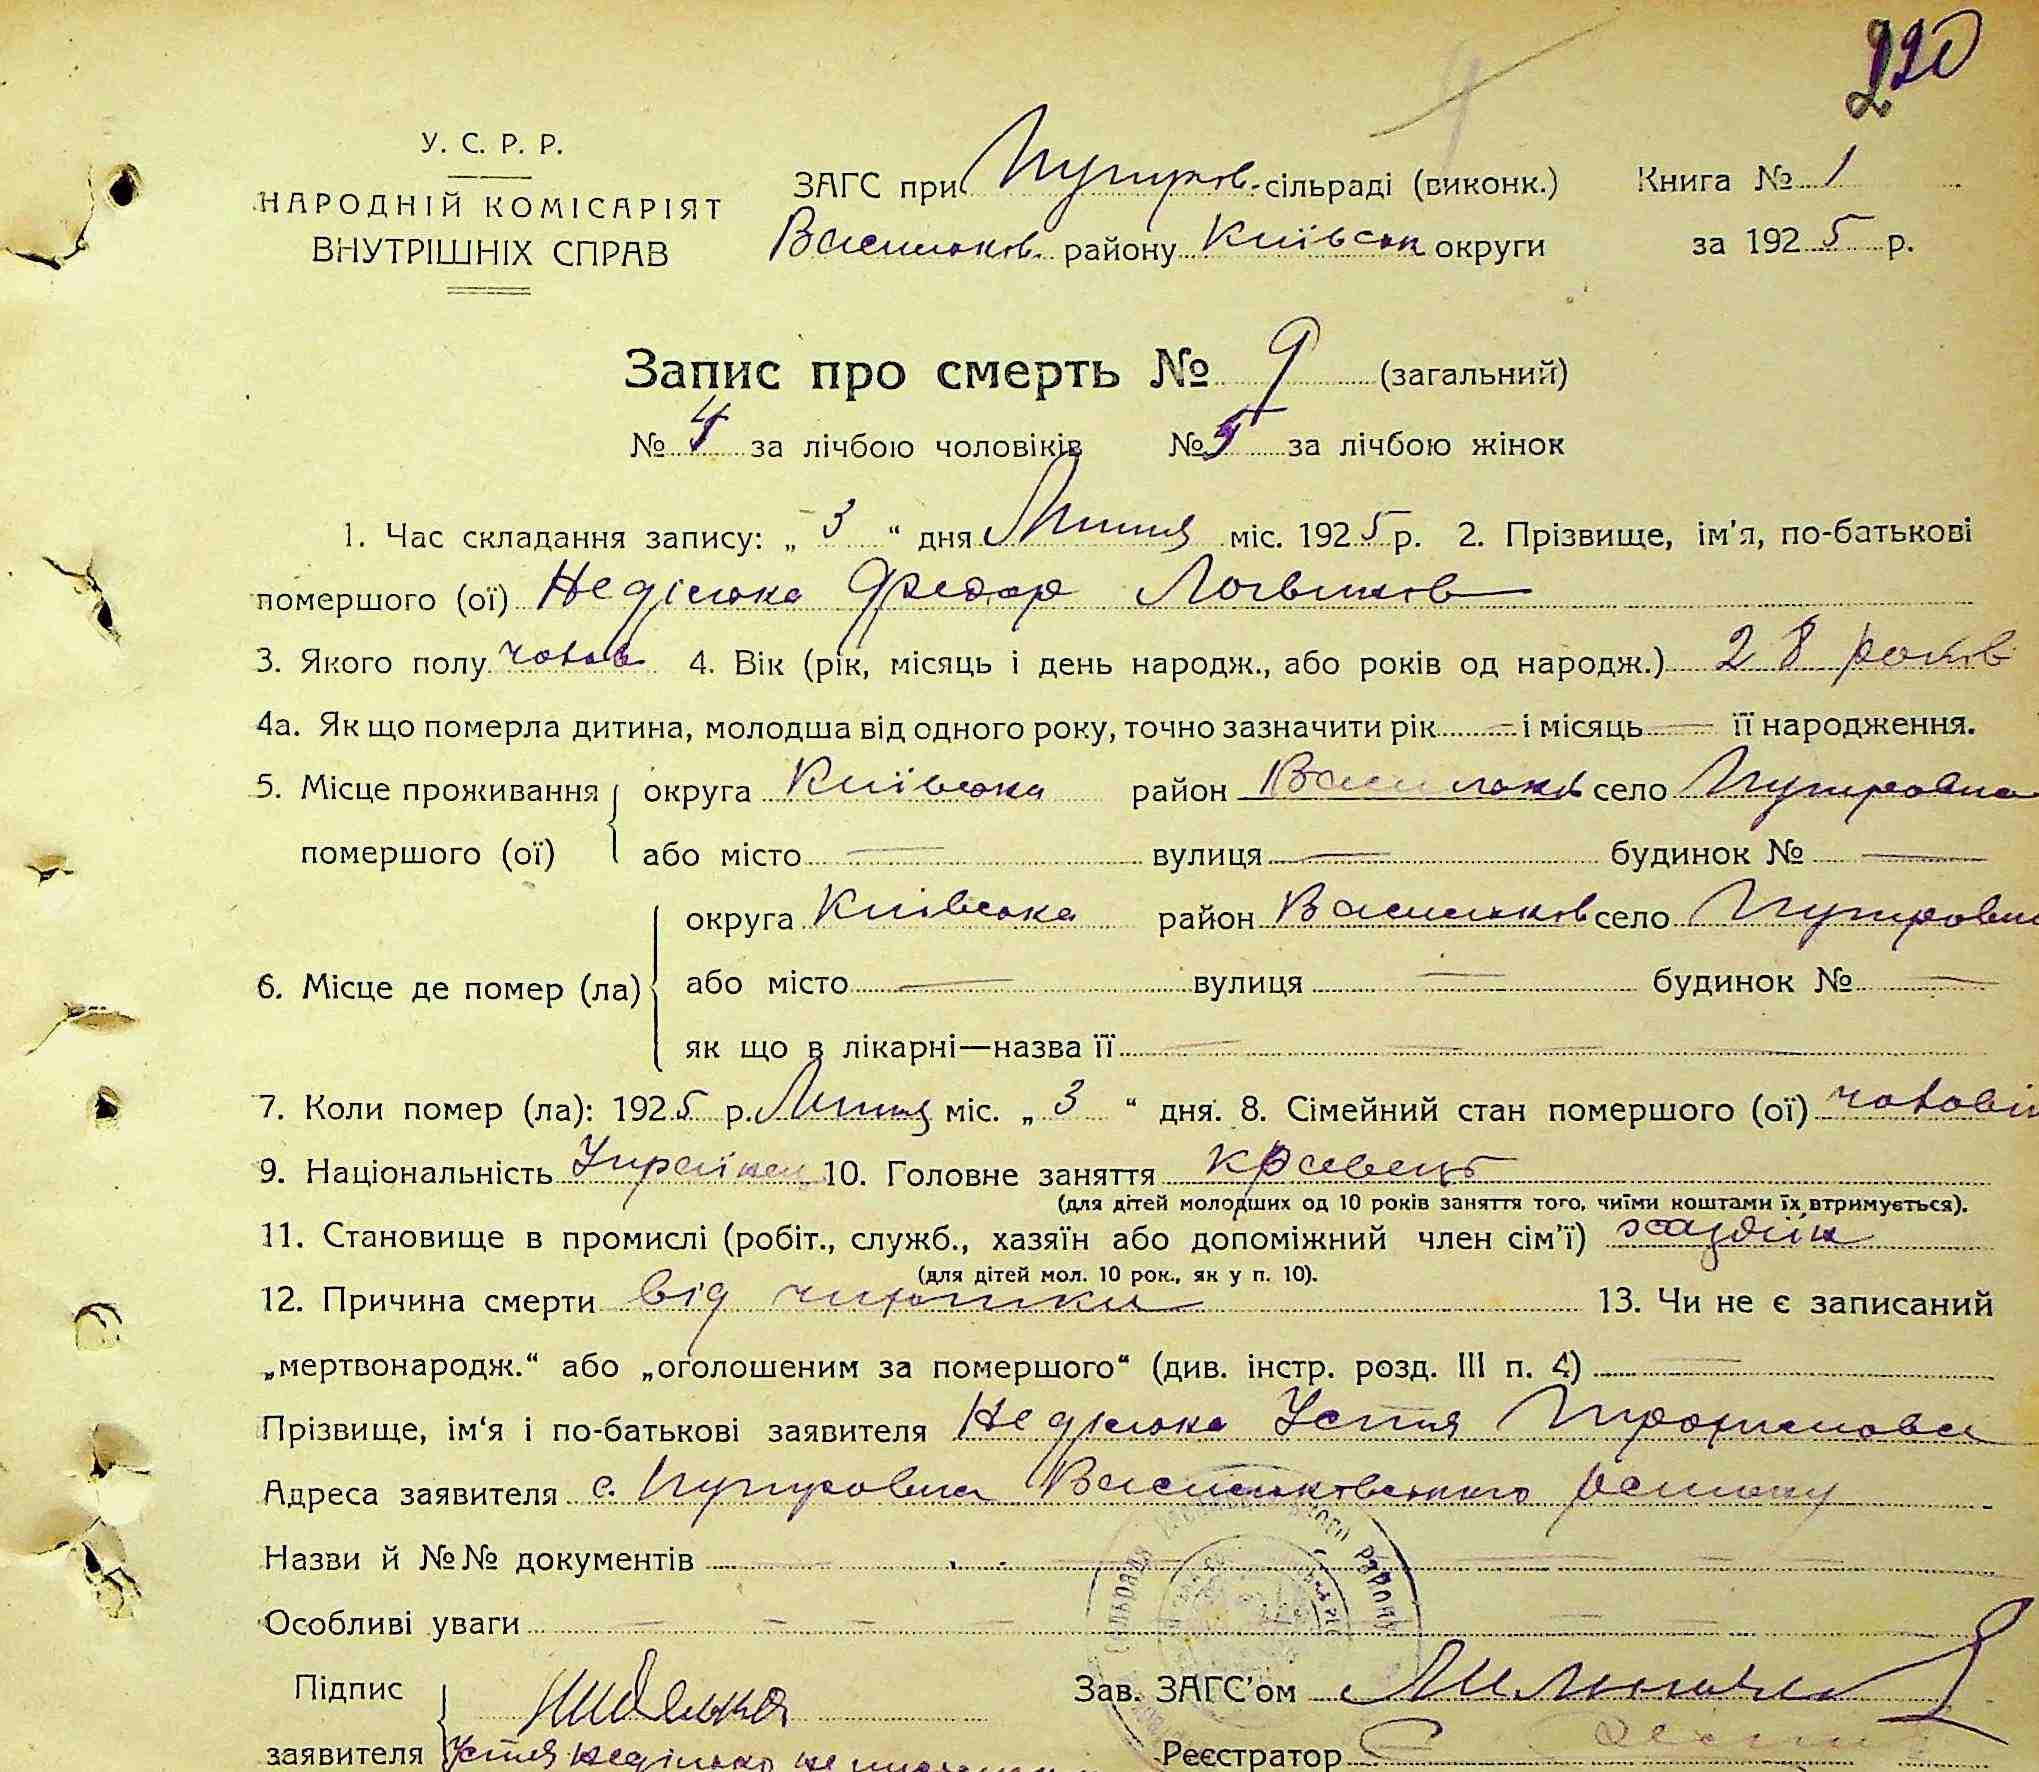 220
У. С. Р. Р.
НАРОДНІЙ КОМІСАРІЯТ
ВНУТРІШНІХ СПРАВ
ЗАГС при Путров. сільраді (виконк.)
Васильков. району Київськ округи
Книга № 1
за 1925 р.
Запис про смерть № 9 (загальний)
№ 4 за лічбою чоловіків № 5 за лічбою жінок
1. Час складання запису: „ 3 “ дня Липня міс. 1925 р. 2. Прізвище, ім'я, по-батькові
помершого (ої) Неділько Федор Логвинов
3. Якого полу чолов 4. Вік (рік, місяць і день народж., або років од народж.) 28 років
4а. Як що померла дитина, молодша від одного року, точно зазначити рік — і місяць — її народження.
5. Місце проживання помершого (ої) округа Київська район Васильков село Путровка
або місто — вулиця — будинок № —
6. Місце де помер (ла) округа Київська район Васильков село Путровк
або місто — вулиця — будинок № —
як що в лікарні—назва її — — — —
7. Коли помер (ла): 1925 р. Липня міс. „ 3 “ дня. 8. Сімейний стан помершого (ої)
9. Національність Українец 10. Головне заняття кравець
(для дітей молодших од 10 років заняття того, чиїми коштами їх втримується).
11. Становище в промислі (робіт., служб., хазяїн або допоміжний член сім'ї) хазяїн
(для дітей мол. 10 рок., як у п. 10).
12. Причина смерти від 13. Чи не є записаний
„мертвонародж.“ або „оголошеним за помершого“ (див. інстр. розд. III п. 4) —
Прізвище, ім'я і по-батькові заявителя Неділько Устя
Адреса заявителя с. Путровка Васильковського району
Назви й №№ документів — — —
Особливі уваги — — —
Підпис
заявителя Устя Неділько
Зав. ЗАГС'ом
Реєстратор